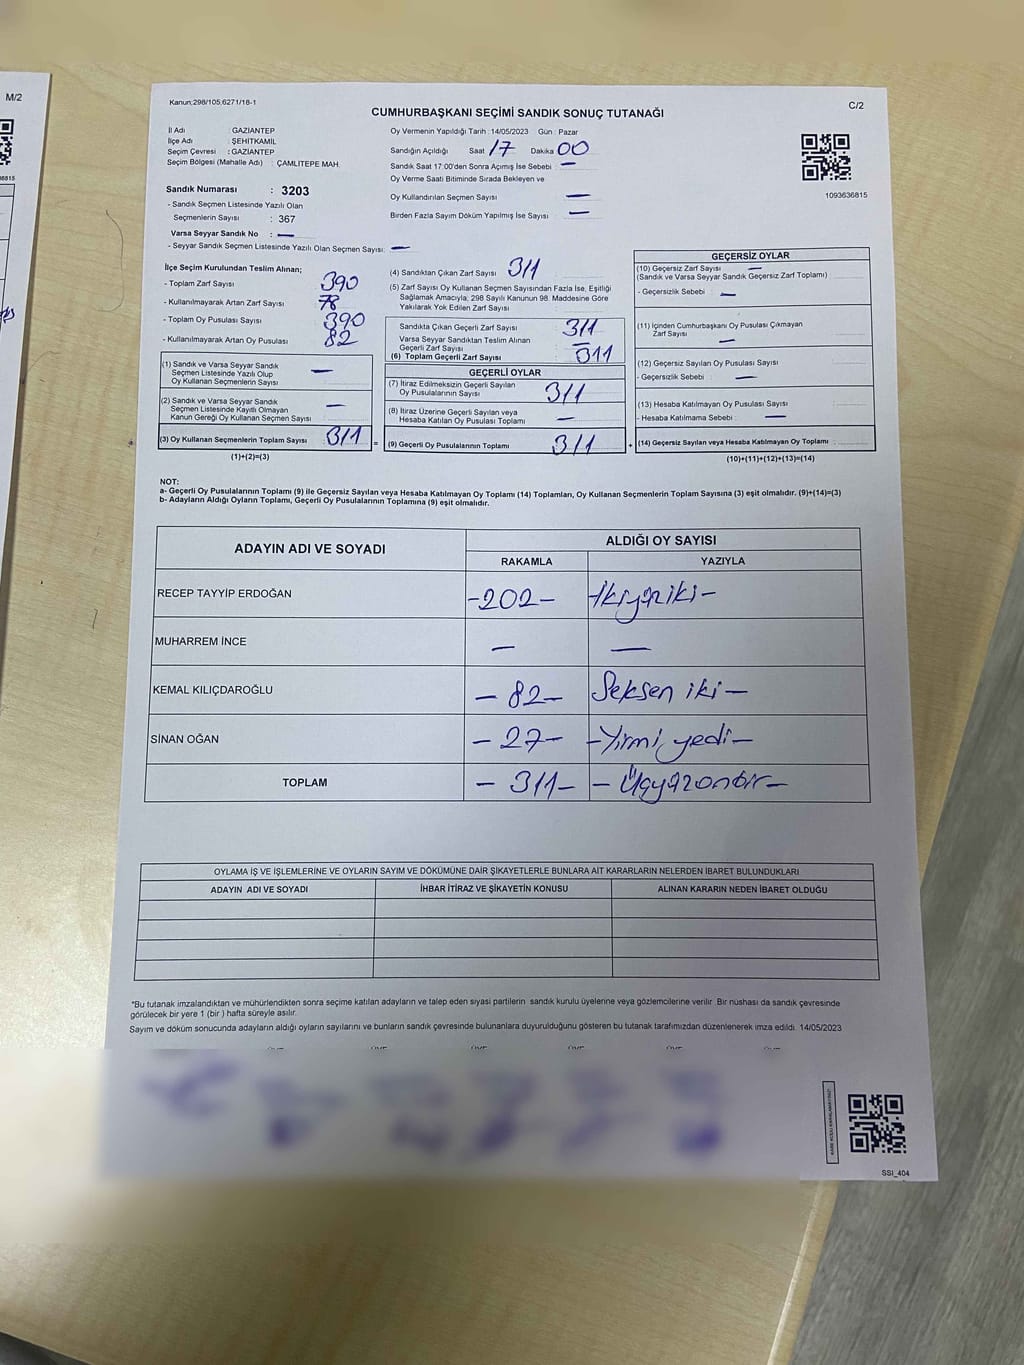 M/2
Kanun;298/105;6271/18-1
C/2
CUMHURBAŞKANI SEÇİMİ SANDIK SONUÇ TUTANAĞI
İl Adı : GAZİANTEP
İlçe Adı : ŞEHİTKAMİL
Seçim Çevresi : GAZİANTEP
Seçim Bölgesi (Mahalle Adı) : ÇAMLITEPE MAH.
Sandık Numarası : 3203
- Sandık Seçmen Listesinde Yazılı Olan
Seçmenlerin Sayısı : 367
Varsa Seyyar Sandık No : —
- Seyyar Sandık Seçmen Listesinde Yazılı Olan Seçmen Sayısı: —
Oy Vermenin Yapıldığı Tarih :14/05/2023 Gün : Pazar
Sandığın Açıldığı Saat 17 Dakika 00
Sandık Saat 17:00'den Sonra Açımış İse Sebebi : —
Oy Verme Saati Bitiminde Sırada Bekleyen ve
Oy Kullandırılan Seçmen Sayısı —
Birden Fazla Sayım Döküm Yapılmış İse Sayısı : —
1093636815
İlçe Seçim Kurulundan Teslim Alınan;
- Toplam Zarf Sayısı : 390
- Kullanılmayarak Artan Zarf Sayısı : 78
- Toplam Oy Pusulası Sayısı : 390
- Kullanılmayarak Artan Oy Pusulası : 82
(1) Sandık ve Varsa Seyyar Sandık
Seçmen Listesinde Yazılı Olup
Oy Kullanan Seçmenlerin Sayısı : —
(2) Sandık ve Varsa Seyyar Sandık
Seçmen Listesinde Kaydı Olmayan
Kanun Gereği Oy Kullanan Seçmen Sayısı : —
(3) Oy Kullanan Seçmenlerin Toplam Sayısı : 311
(1)+(2)=(3)
(4) Sandıktan Çıkan Zarf Sayısı : 311
(5) Zarf Sayısı Oy Kullanan Seçmen Sayısından Fazla İse, Eşitliği
Sağlamak Amacıyla; 298 Sayılı Kanunun 98. Maddesine Göre
Yakılarak Yok Edilen Zarf Sayısı :
Sandıkta Çıkan Geçerli Zarf Sayısı : 311
Varsa Seyyar Sandıktan Teslim Alınan
Geçerli Zarf Sayısı : —
(6) Toplam Geçerli Zarf Sayısı : 311
GEÇERLİ OYLAR
(7) İtiraz Edilmeksizin Geçerli Sayılan
Oy Pusulalarının Sayısı : 311
(8) İtiraz Üzerine Geçerli Sayılan veya
Hesaba Katılan Oy Pusulası Toplamı : —
= (9) Geçerli Oy Pusulalarının Toplamı : 311
GEÇERSİZ OYLAR
(10) Geçersiz Zarf Sayısı : —
(Sandık ve Varsa Seyyar Sandık Geçersiz Zarf Toplamı)
- Geçersizlik Sebebi : —
(11) İçinden Cumhurbaşkanı Oy Pusulası Çıkmayan
Zarf Sayısı : —
(12) Geçersiz Sayılan Oy Pusulası Sayısı :
- Geçersizlik Sebebi : —
(13) Hesaba Katılmayan Oy Pusulası Sayısı :
- Hesaba Katılmama Sebebi : —
+ (14) Geçersiz Sayılan veya Hesaba Katılmayan Oy Toplamı :
(10)+(11)+(12)+(13)=(14)
NOT:
a- Geçerli Oy Pusulalarının Toplamı (9) ile Geçersiz Sayılan veya Hesaba Katılmayan Oy Toplamı (14) Toplamları, Oy Kullanan Seçmenlerin Toplam Sayısına (3) eşit olmalıdır. (9)+(14)=(3)
b- Adayların Aldığı Oyların Toplamı, Geçerli Oy Pusulalarının Toplamına (9) eşit olmalıdır.
ADAYIN ADI VE SOYADI ALDIĞI OY SAYISI
RAKAMLA YAZIYLA
RECEP TAYYİP ERDOĞAN -202- -İkiyüziki-
MUHARREM İNCE — —
KEMAL KILIÇDAROĞLU -82- Seksen iki-
SİNAN OĞAN -27- -Yirmi yedi-
TOPLAM -311- -Üçyüzonbir-
OYLAMA İŞ VE İŞLEMLERİNE VE OYLARIN SAYIM VE DÖKÜMÜNE DAİR ŞİKAYETLERLE BUNLARA AİT KARARLARIN NELERDEN İBARET BULUNDUKLARI
ADAYIN ADI VE SOYADI İHBAR İTİRAZ VE ŞİKAYETİN KONUSU ALINAN KARARIN NEDEN İBARET OLDUĞU
*Bu tutanak imzalandıktan ve mühürlendikten sonra seçime katılan adayların ve talep eden siyasi partilerin sandık kurulu üyelerine veya gözlemcilerine verilir. Bir nüshası da sandık çevresinde
görülecek bir yere 1 (bir ) hafta süreyle asılır.
Sayım ve döküm sonucunda adayların aldığı oyların sayılarını ve bunların sandık çevresinde bulunanlara duyurulduğunu gösteren bu tutanak tarafımızdan düzenlenerek imza edildi. 14/05/2023
SSI_404